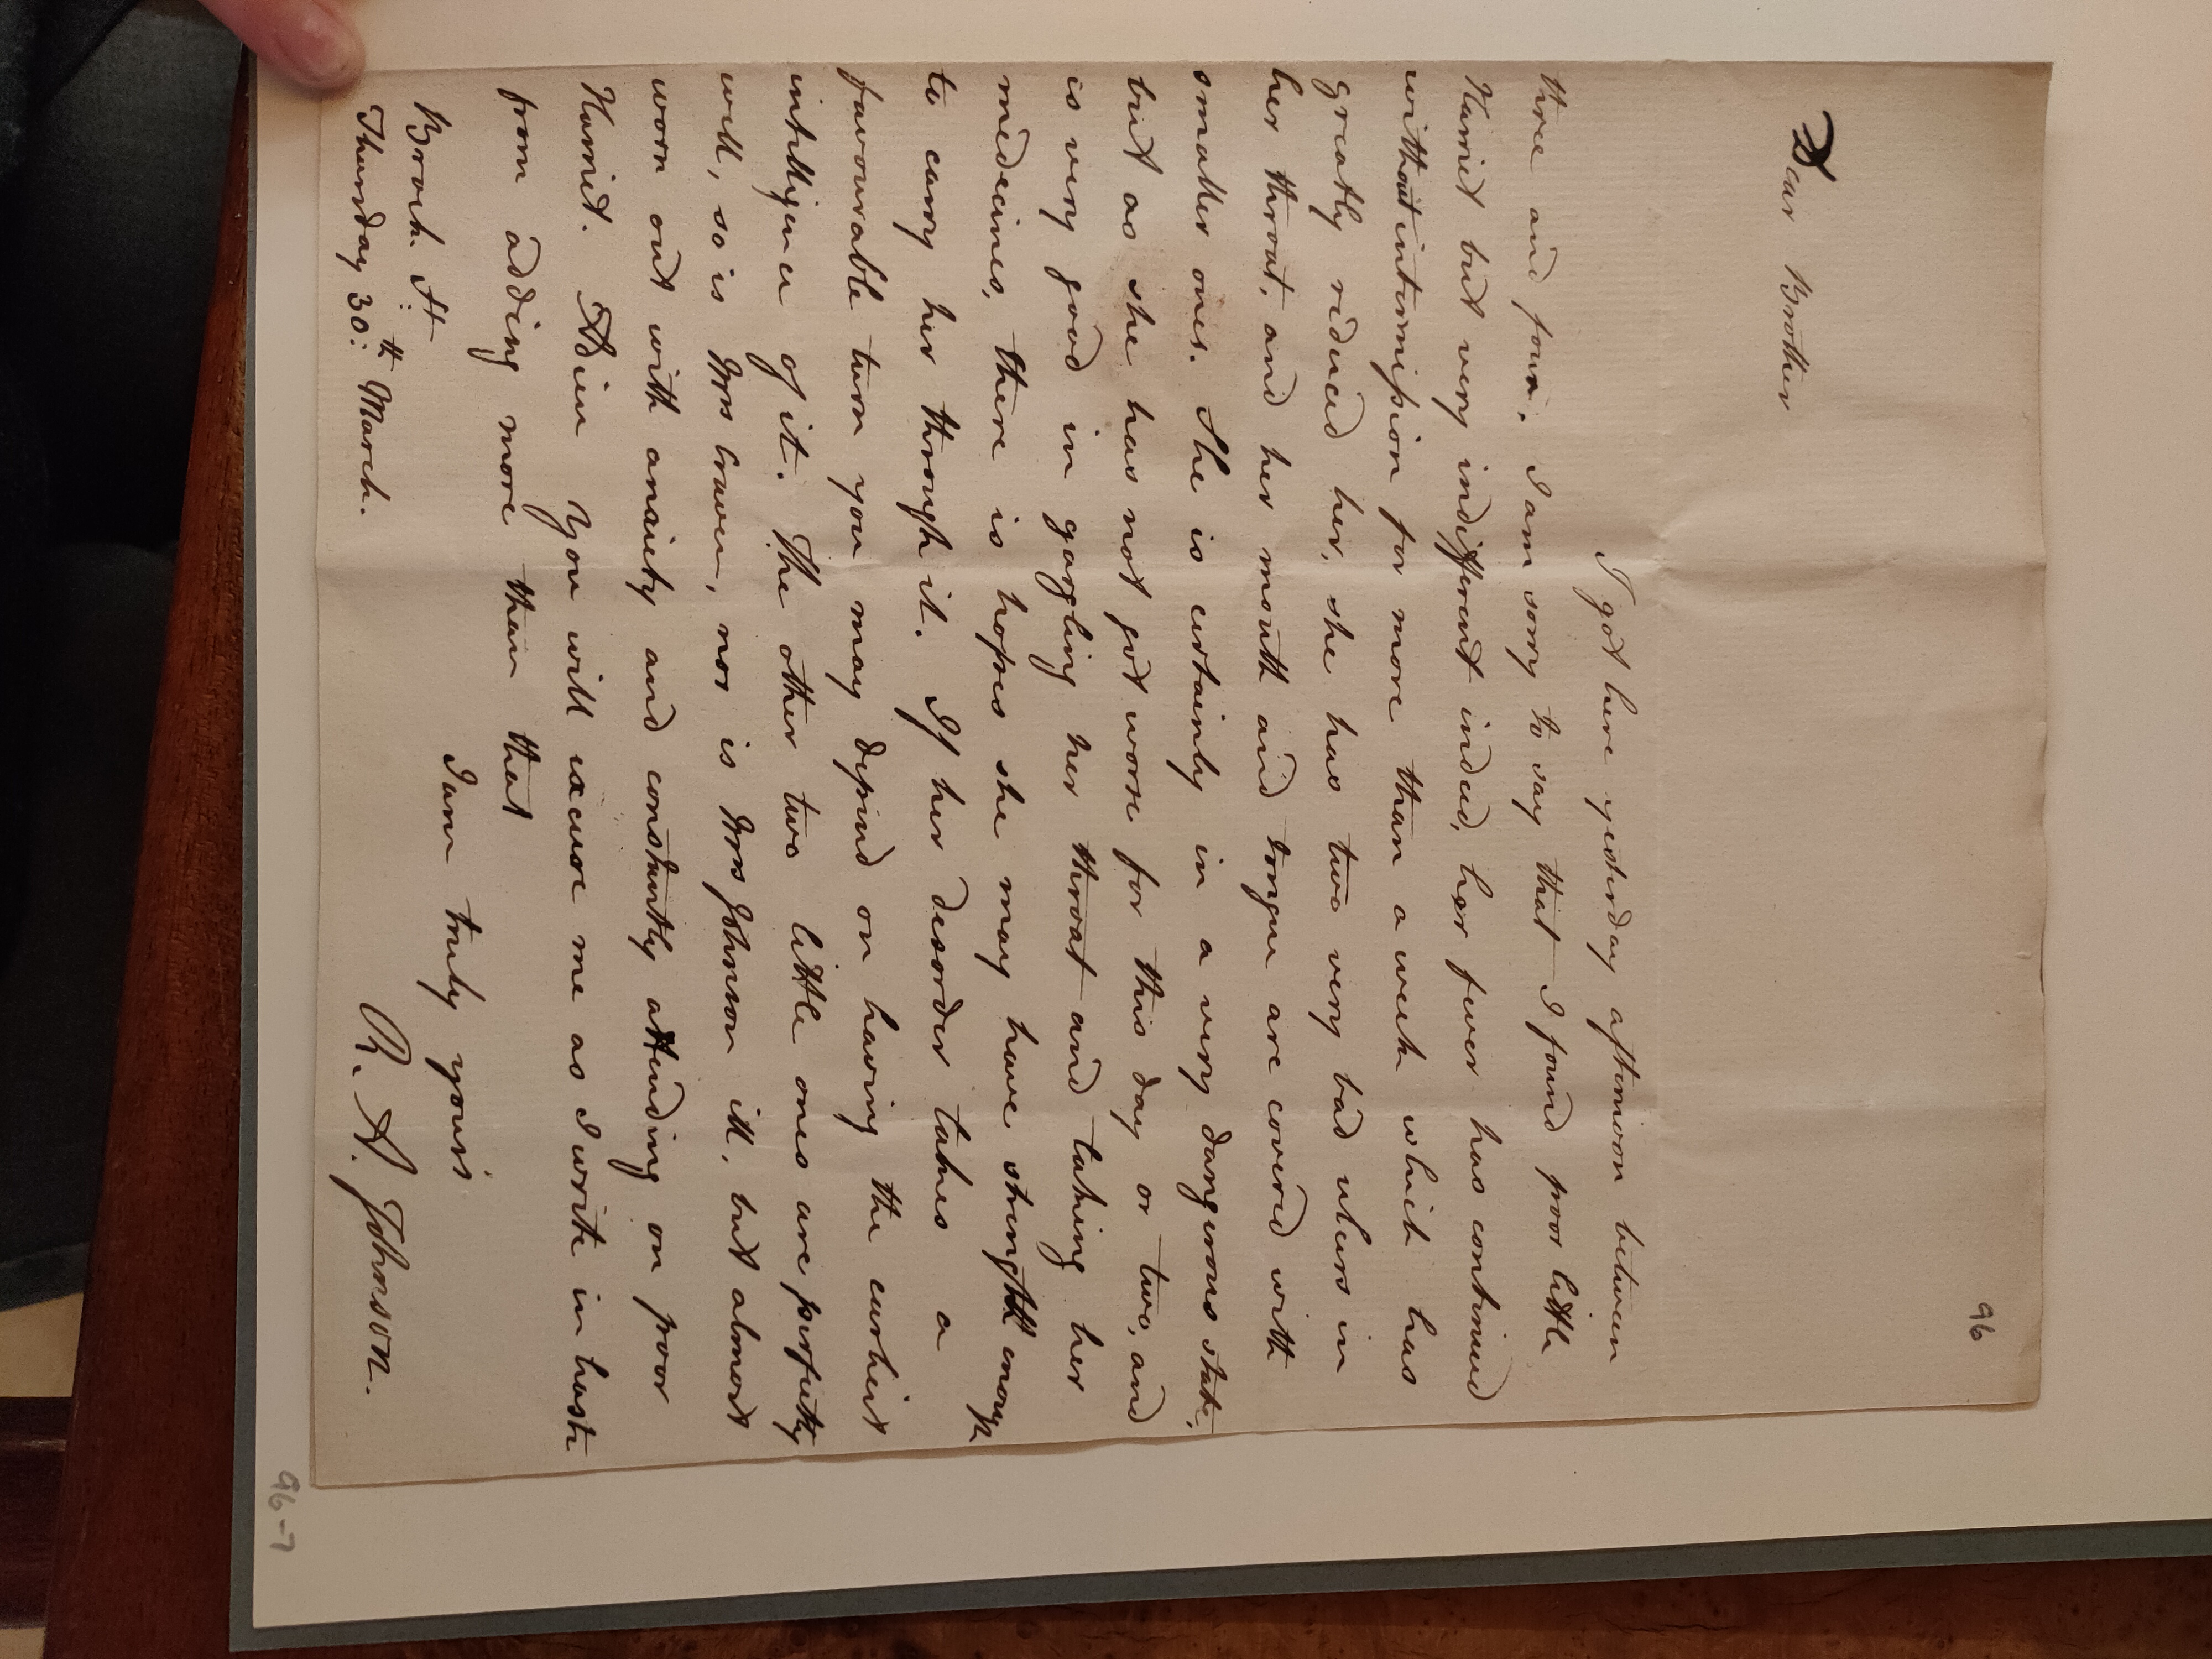 96
Dear Brother
I got here yesterday afternoon between
three and four. I am sorry to say that I found poor little
Harriet but very indifferent indeed, her fever has continued
without intermission for more than a week which has
greatly reduced her, she has two very bad ulcers in
her throat, and her mouth and tongue are covered with
smaller ones. She is certainly in a very dangerous state,
but as she has not got worse for this day or two, and
is very good in gargling her throat and taking her
medecines, there is hopes she may have strength enough
to carry her through it. If her desorder takes a
favourable turn you may depend on having the earliest
intelligence of it. The other two little ones are perfectly
well, so is Mrs Craven, nor is Mrs Johnson ill, but almost
worn out with anxiety and constantly attending on poor
Harriet. Adieu you will excuse me as I write in haste
from adding more than that
I am truly yours
Brock. St:
Thursday 30:th March.
R. A. Johnson.
96-7